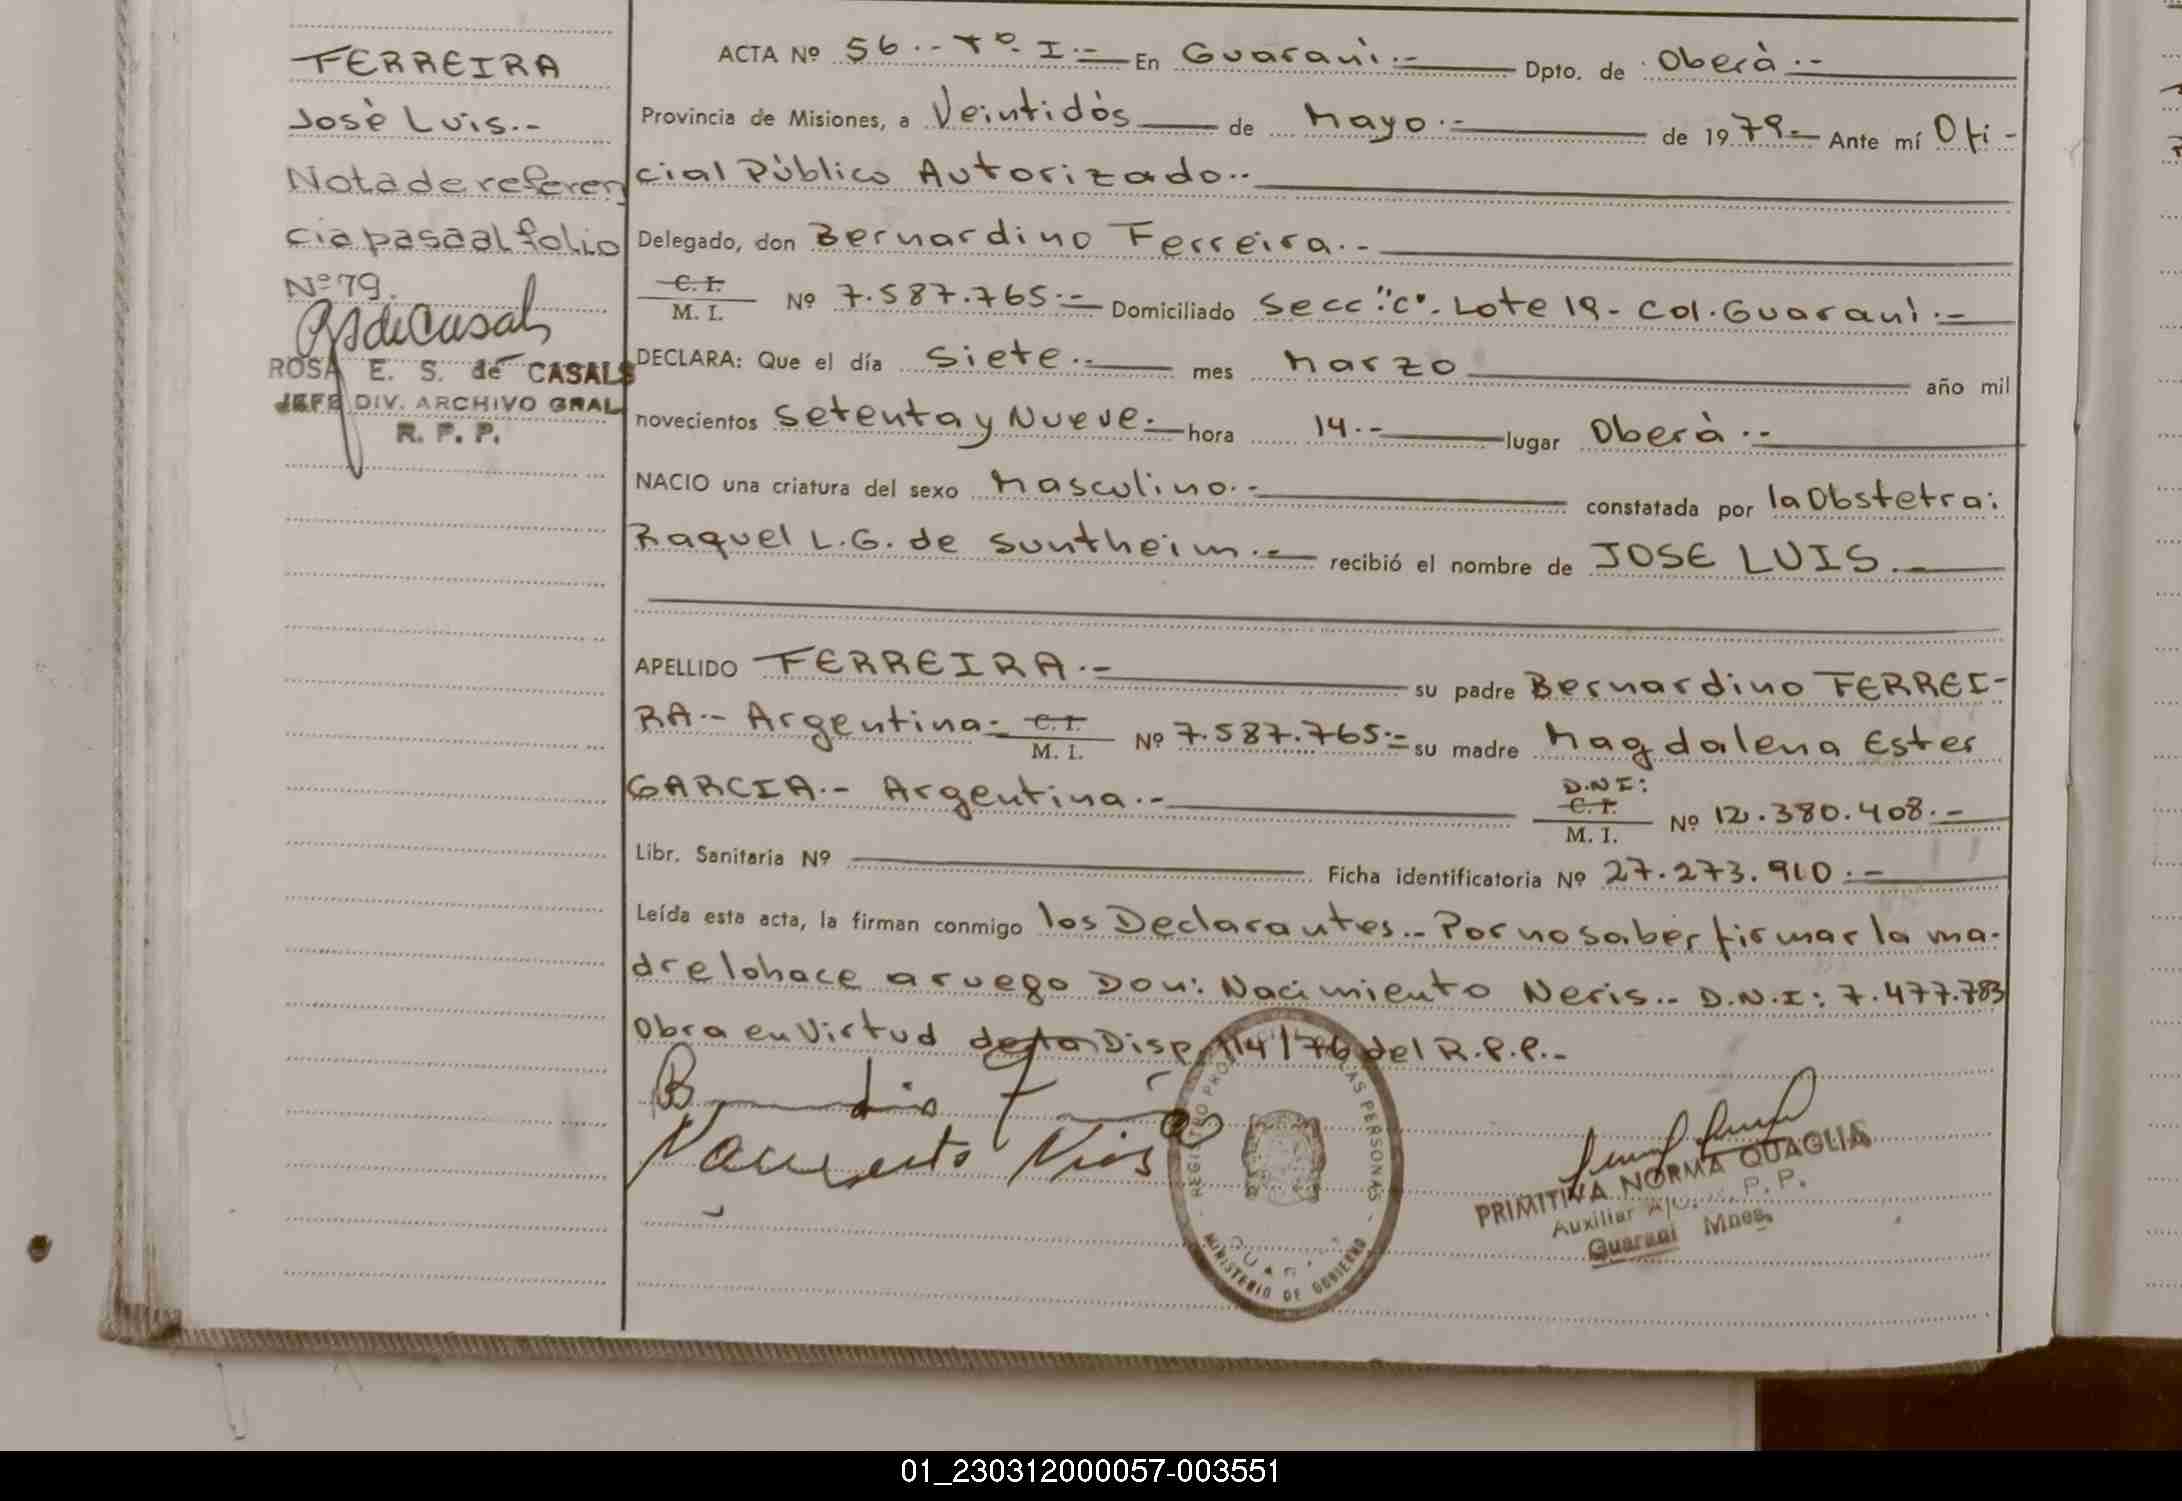 FERREIRA
José Luis.-
Nota de referen
cia pasa al folio
Nº 79.
ROSA E. S. de CASALS
JEFE DIV. ARCHIVO GRAL
R. P. P.
ACTA Nº 56.- Tº. I.- En Guaraní.- Dpto. de Oberá.-
Provincia de Misiones, a Veintidós de Mayo.- de 1979.- Ante mí Ofi-
cial Público Autorizado.-
Delegado, don Bernardino Ferreira.-
C. I. M. I. Nº 7.587.765.- Domiciliado Secc "C". Lote 19- Col. Guaraní.-
DECLARA: Que el día Siete.- mes Marzo año mil
novecientos Setenta y Nueve.- hora 14.- lugar Oberá.-
NACIO una criatura del sexo Masculino.- constatada por la Obstetra:
Raquel L.G. de Suntheim.- recibió el nombre de JOSE LUIS.-
APELLIDO FERREIRA.- su padre Bernardino FERREI-
RA.- Argentina.- C. I. M. I. Nº 7.587.765.- su madre Magdalena Ester
GARCIA.- Argentina.- D.N.I: C. I. M. I. Nº 12.380.408.-
Libr. Sanitaria Nº Ficha identificatoria Nº 27.273.910.-
Leída esta acta, la firman conmigo los Declarantes.- Por no saber firmar la ma-
dre lo hace a ruego Don: Nacimiento Neris.- D.N.I: 7.477.783
Obra en Virtud de la Disp. 114/76 del R.P.P.-
REGISTRO PROVINCIAL DE LAS PERSONAS
MINISTERIO DE GOBIERNO
PRIMITIVA NORMA QUAGLIA
Auxiliar R. P. P.
Guaraní Mnes.
01_230312000057-003551